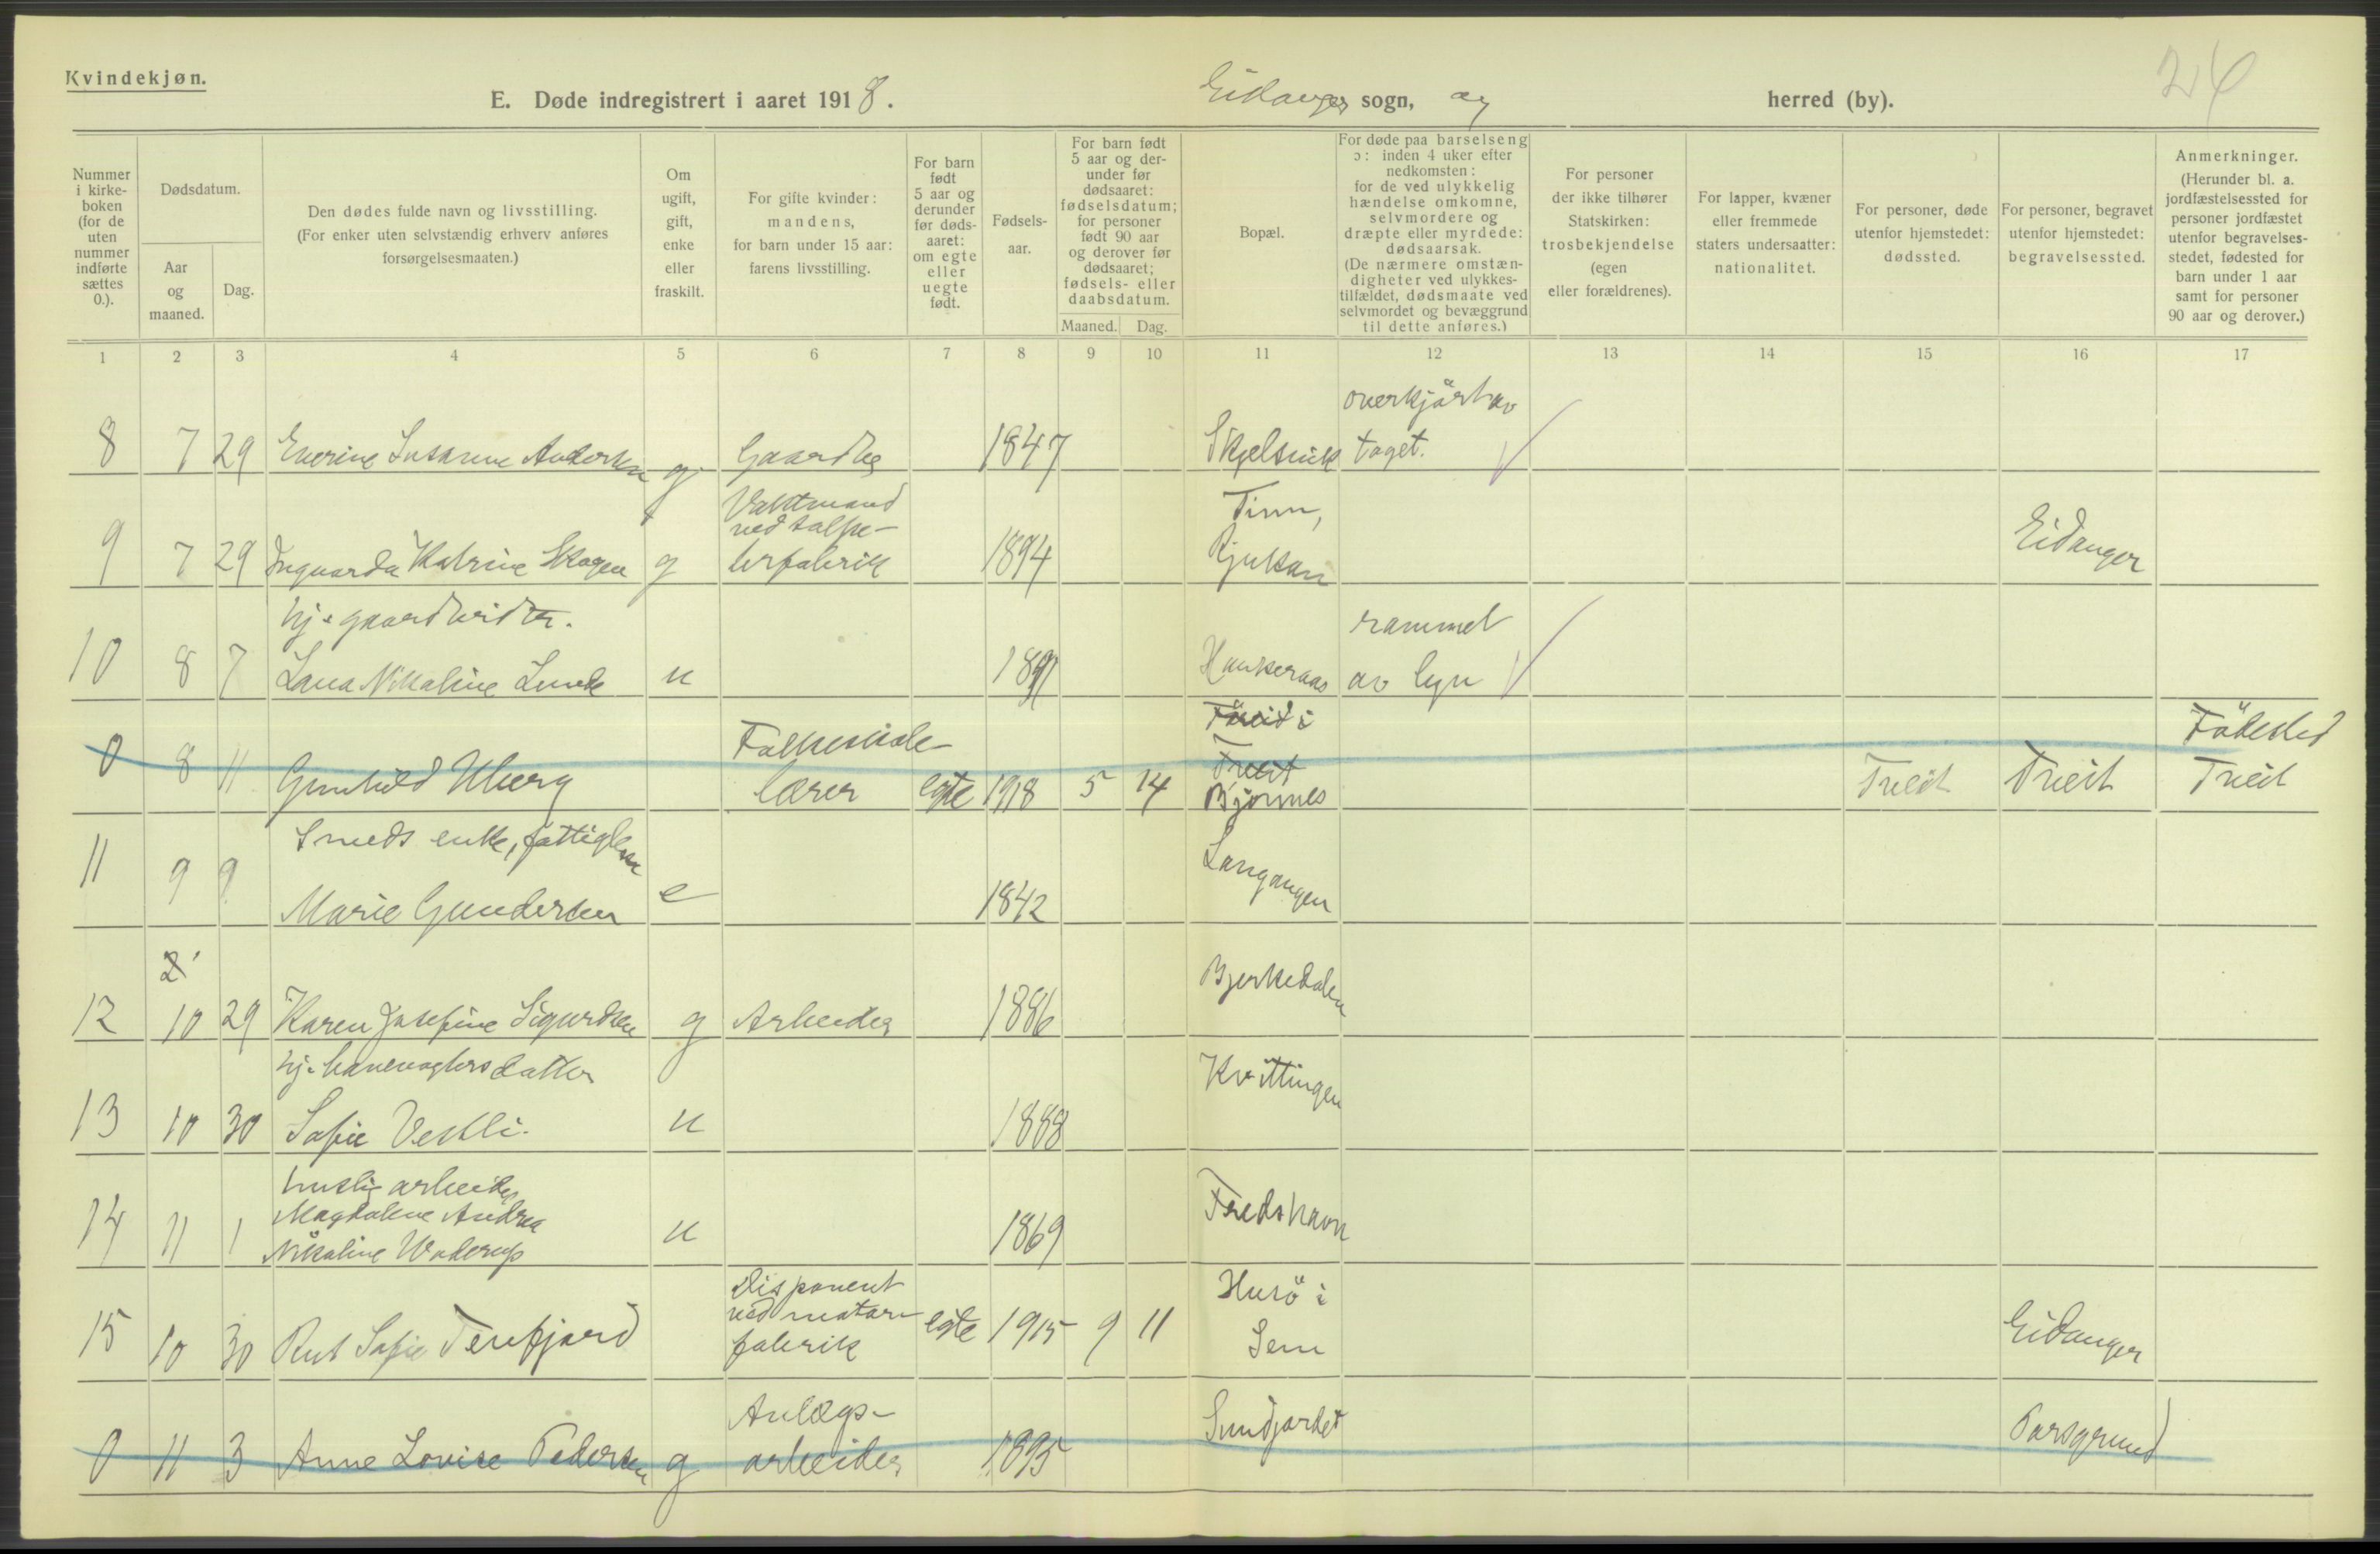 Kvindekjøn.
E. Døde indregistrert i aaret 1918. Eidanger sogn, og herred (by). 24
Nummer i kirke- boken (for de uten nummer indførte sættes 0.).
Dødsdatum.
Aar og maaned.
Dag.
Den dødes fulde navn og livsstilling.
(For enker uten selvstændig erhverv anføres
forsørgelsesmaaten.)
Om ugift, gift, enke eller fraskilt.
For gifte kvinder: mandens, for barn under 15 aar: farens livsstilling.
For barn født 5 aar og derunder før døds- aaret: om egte eller uegte født.
Fødsels- aar.
For barn født 5 aar og der- under før dødsaaret: fødselsdatum; for personer født 90 aar og derover før dødsaaret; fødsels- eller daabsdatum.
Maaned. Dag.
Bopæl.
For døde paa barselseng ɔ: inden 4 uker efter nedkomsten: for de ved ulykkelig hændelse omkomne, selvmordere og dræpte eller myrdede: dødsaarsak. (De nærmere omstæn- digheter ved ulykkes- tilfældet, dødsmaate ved selvmordet og bevæggrund til dette anføres.)
For personer der ikke tilhører Statskirken: trosbekjendelse (egen eller forældrenes).
For lapper, kvæner eller fremmede staters undersaatter: nationalitet.
For personer, døde utenfor hjemstedet: dødssted.
For personer, begravet utenfor hjemstedet: begravelsessted.
Anmerkninger. (Herunder bl. a. jordfæstelsessted for personer jordfæstet utenfor begravelses- stedet, fødested for barn under 1 aar samt for personer 90 aar og derover.)
1 2 3 4 5 6 7 8 9 10 11 12 13 14 15 16 17
overkjørt av
8 7 29 Everine Susanne Andersen g Gaardbr 1847 Skjelsvik toget.
Vaktmand Tinn,
ved salpe-
9 7 29 Ingvarda Katrine Skogen g terfabrik 1894 Rjukan Eidanger
hj. gaardbrdtr. rammet
10 8 7 Lana Nikoline Lunde u Haukeraas av lyn
Folkeskole- i Fødested
Treit
0 8 11 Gunhild Uberg lærer egte 1918 5 14 Bjønnes Treit Treit Treit
Smeds enke, fattiglem
11 9 9 Marie Gundersen e 1842 Langangen
2
12 10 29 Karen Josefine Sigurdsen g Arbeider 1886 Bjerkedalen
hj. banevogtersdatter
13 10 30 Sofie Vestli. u 1888 Kvittingen
huslig arbeide
Magdalene Andrea
14 11 1 Nikoline Waderup u 1869 Fredshavn
Disponent Husø i
ved motor
15 10 30 Rut Sofie Tenfjord fabrik egte 1915 9 11 Sem Eidanger
Anlægs-
0 11 3 Anne Lovise Pedersen g arbeider 1895 Sundjordet Porsgrund